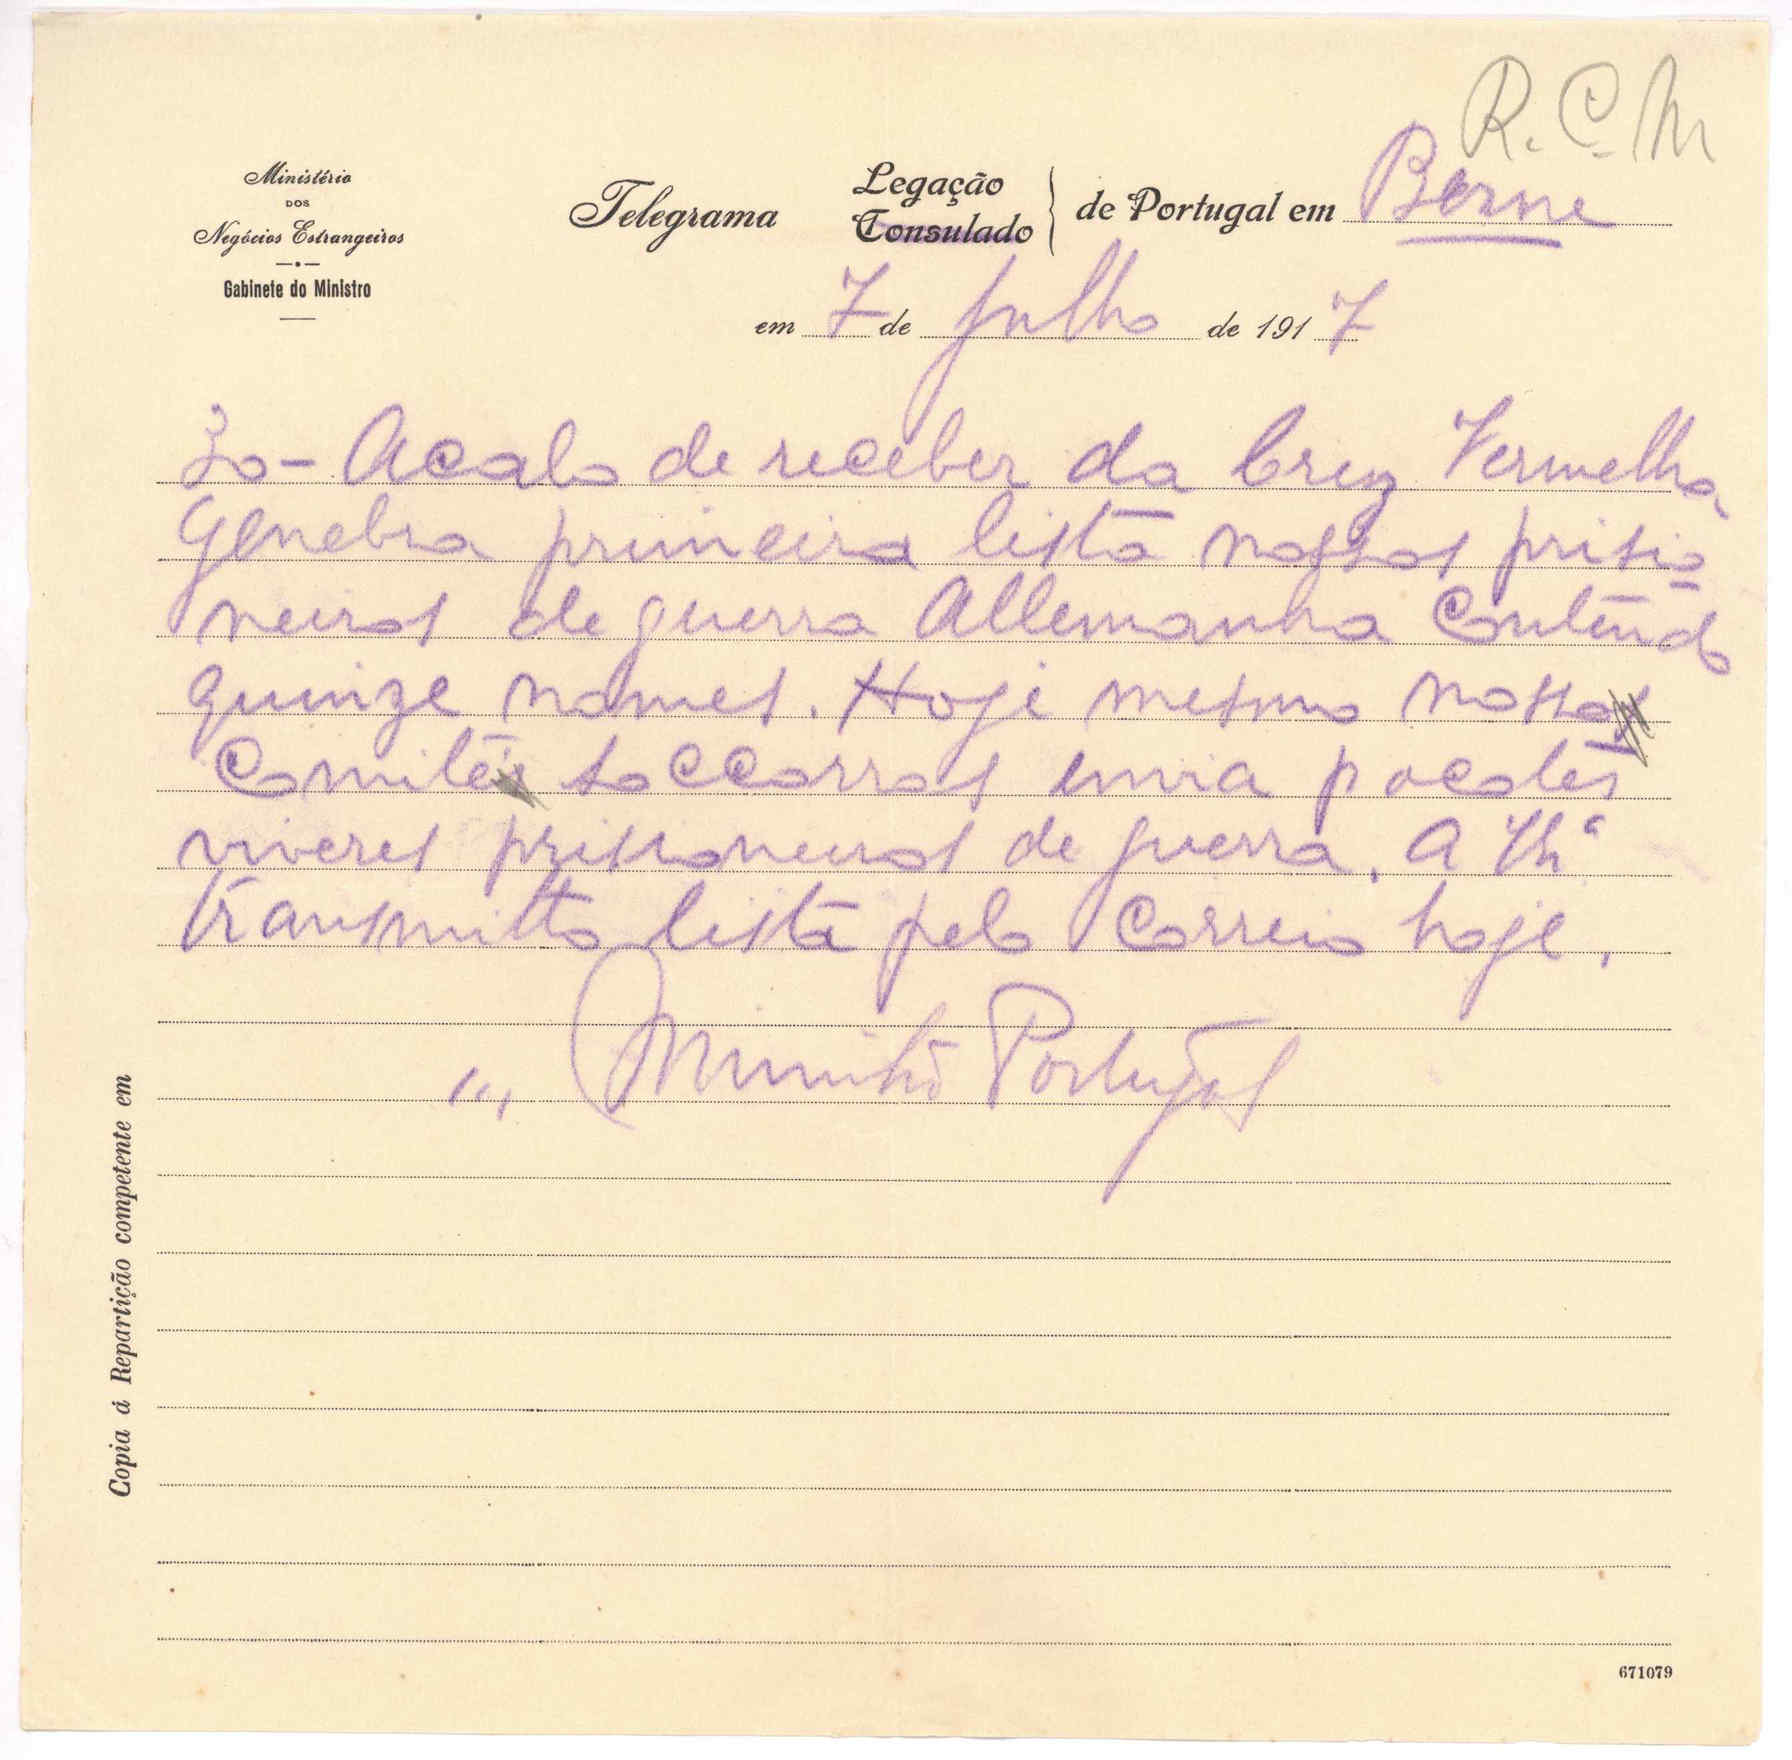 R. C. M
Ministério
DOS
Negócios Estrangeiros
Gabinete do Ministro
Telegrama
Legação
Consulado
de Portugal em Berne
em 7 de Julho de 1917
Acabo de receber da Cruz Vermelha
Genebra primeira lista nossos prisio
neiros de guerra Allemanha contendo
quinze nomes. Hoje mesmo nosso
Comité soccorros envia pacotes
viveres prisioneiros de guerra. A
transmitto lista pelo correio hoje.
Ministro Portugal
Copia á Repartição competente em
671079